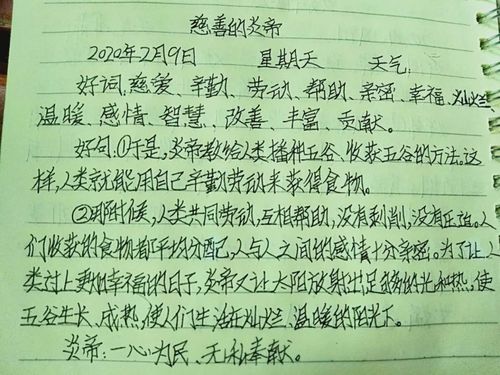 慈善的炎帝
2020年2月9日 星期天 天气:
好词:慈爱、辛勤、劳动、帮助、亲密、幸福、灿烂
温暖、感情、智慧、改善、丰富、贡献。
好句:①于是,炎帝教给人类播种五谷、收获五谷的方法。这
样,人类就能用自己辛勤劳动来获得食物。
②那时候,人类共同劳动,互相帮助,没有剥削,没有压迫。人
们收获的食物都平均分配,人与人之间的感情十分亲密。为了让人
类过上更加幸福的日子,炎帝又让太阳放射出足够的光和热,使
五谷生长、成熟,使人们生活在灿烂、温暖的阳光下。
炎帝:一心为民、无私奉献。